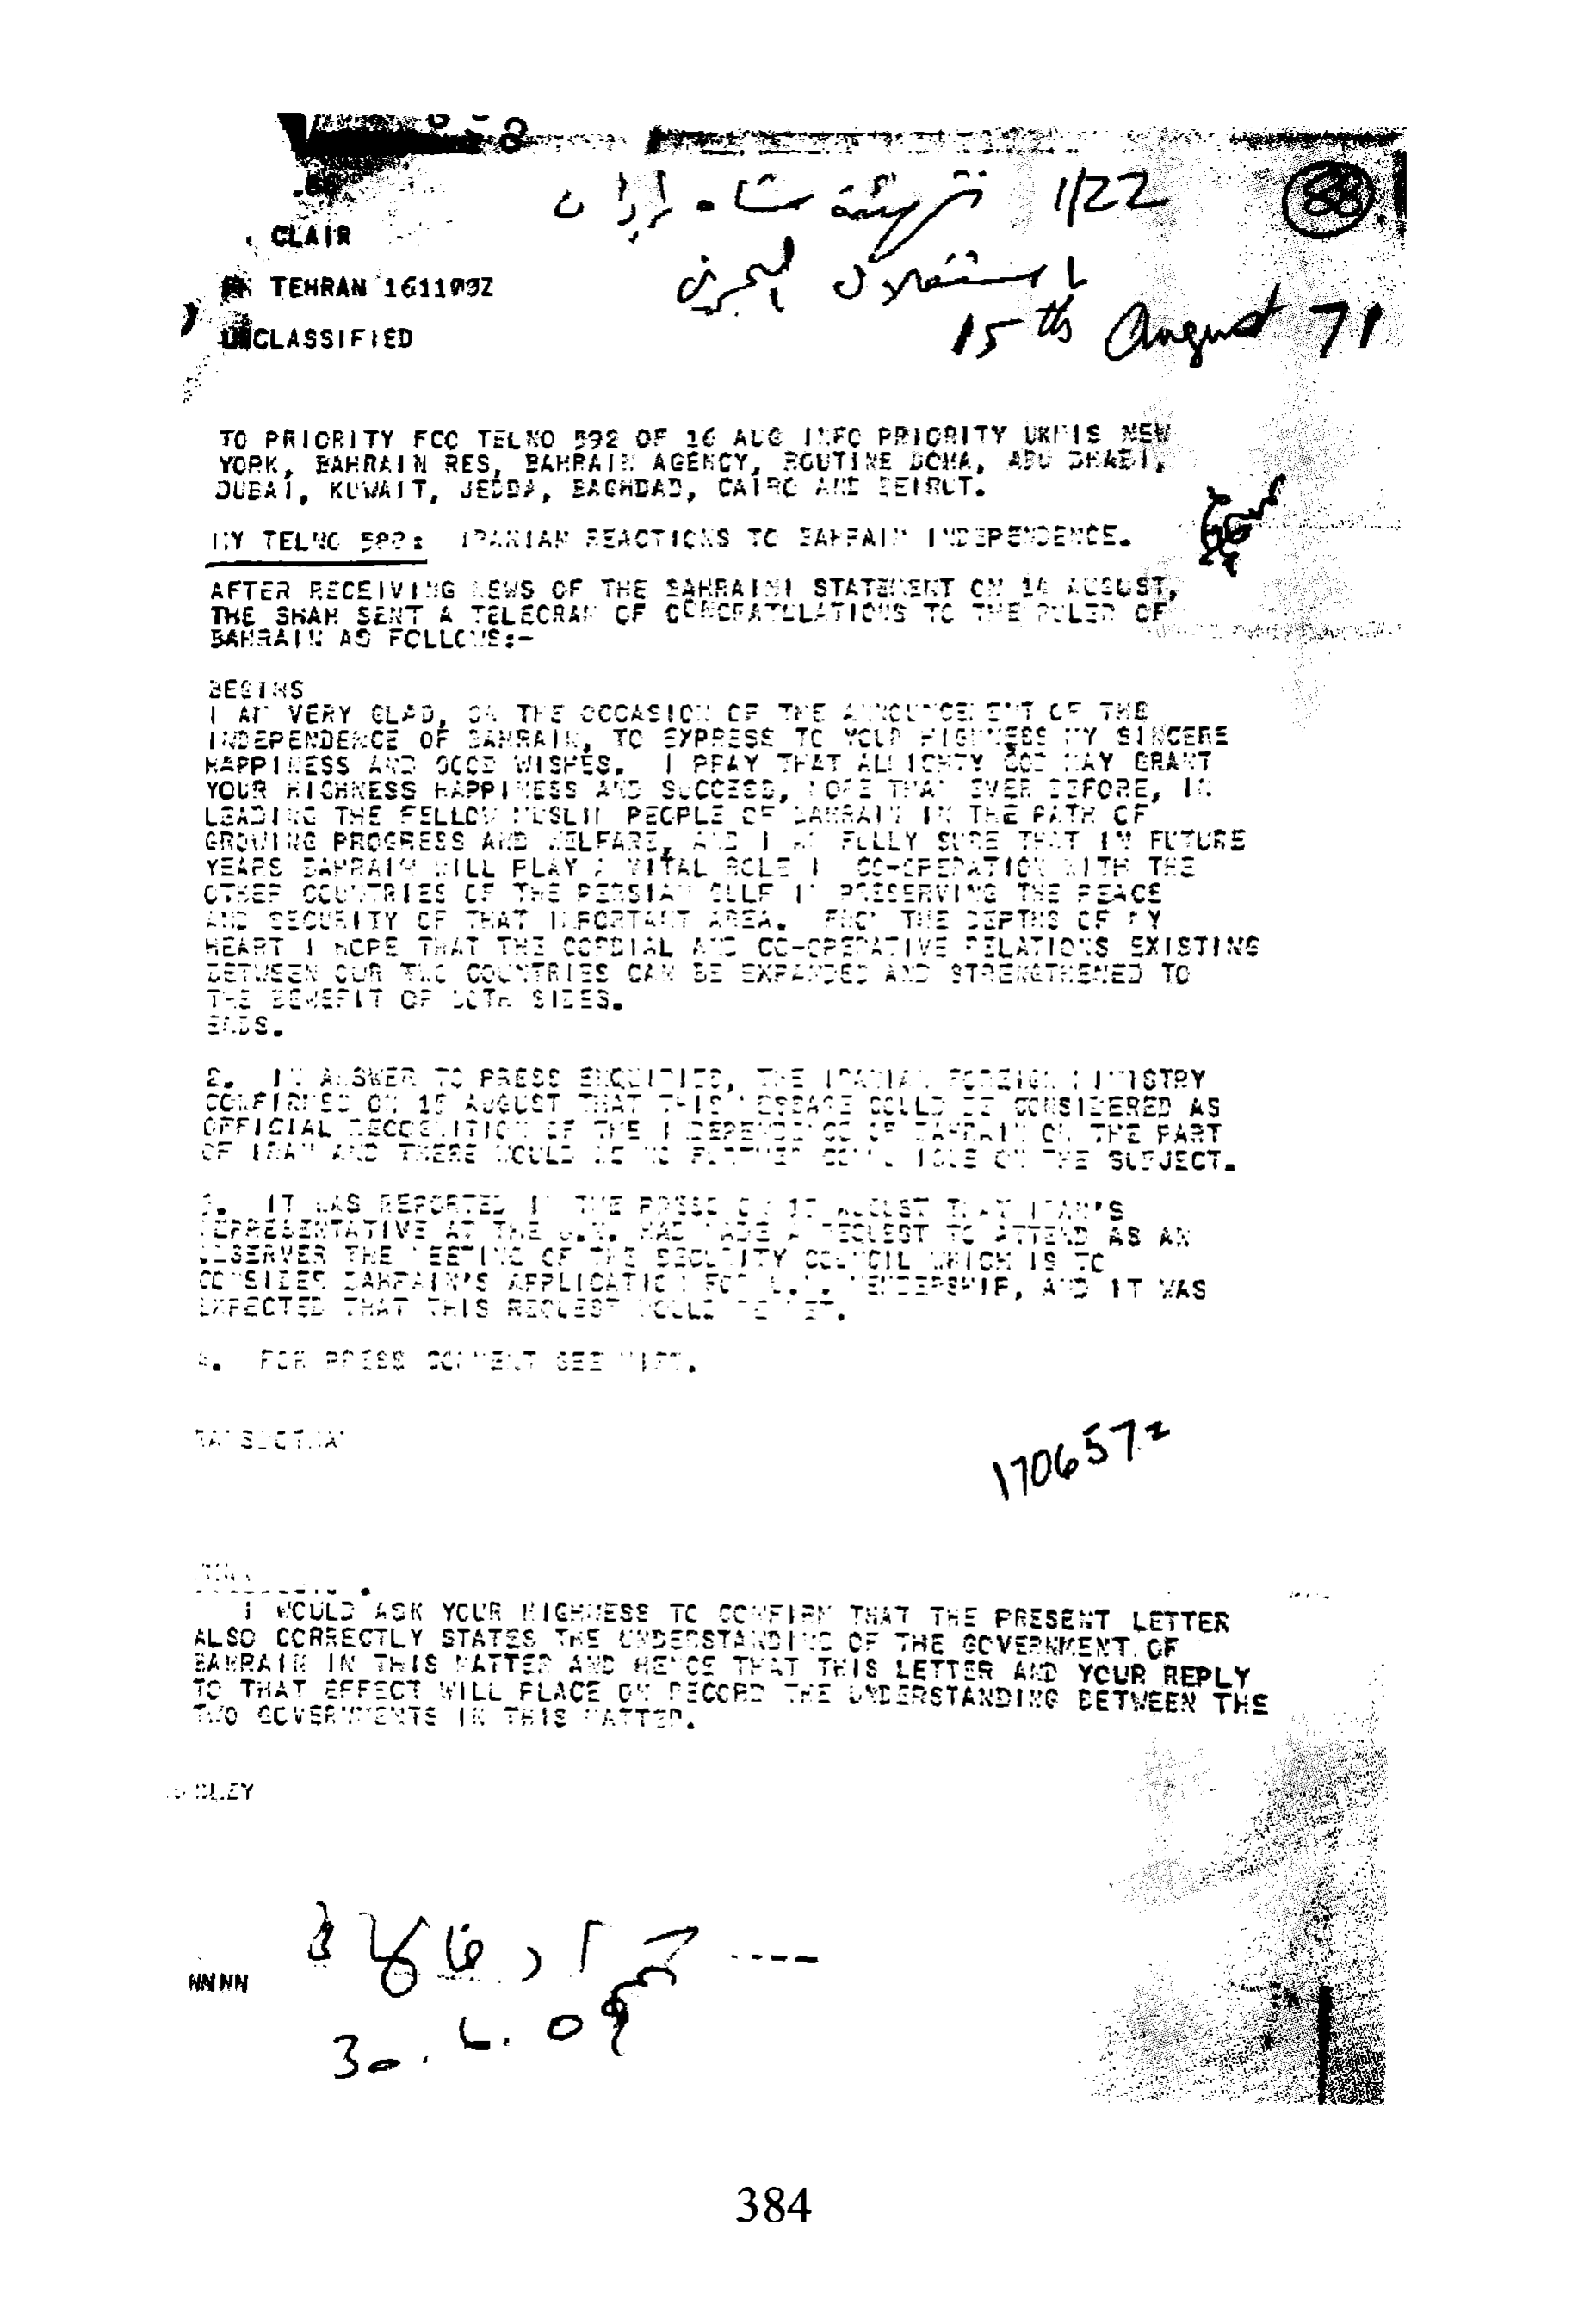 1/22 تهنئة شاه إيران
88
باستقلال البحرين
15th August 71
CLAIR
FM TEHRAN 161100Z
UNCLASSIFIED
TO PRIORITY FCO TELNO 592 OF 16 AUG INFO PRIORITY UKMIS NEW
YORK, BAHRAIN RES, BAHRAIN AGENCY, ROUTINE DOHA, ABU DHABI,
DUBAI, KUWAIT, JEDDA, BAGHDAD, CAIRO AND BEIRUT.
MY TELNO 582: IRANIAN REACTIONS TO BAHRAIN INDEPENDENCE.
AFTER RECEIVING NEWS OF THE BAHRAINI STATEMENT ON 14 AUGUST,
THE SHAH SENT A TELEGRAM OF CONGRATULATIONS TO THE RULER OF
BAHRAIN AS FOLLOWS:-
BEGINS
I AM VERY GLAD, ON THE OCCASION OF THE ANNOUNCEMENT OF THE
INDEPENDENCE OF BAHRAIN, TO EXPRESS TO YOUR HIGHNESS MY SINCERE
HAPPINESS AND GOOD WISHES. I PRAY THAT ALMIGHTY GOD MAY GRANT
YOUR HIGHNESS HAPPINESS AND SUCCESS, MORE THAN EVER BEFORE, IN
LEADING THE FELLOW MUSLIM PEOPLE OF BAHRAIN IN THE PATH OF
GROWING PROGRESS AND WELFARE, AND I AM FULLY SURE THAT IN FUTURE
YEARS BAHRAIN WILL PLAY A VITAL ROLE IN CO-OPERATION WITH THE
OTHER COUNTRIES OF THE PERSIAN GULF IN PRESERVING THE PEACE
AND SECURITY OF THAT IMPORTANT AREA. FROM THE DEPTHS OF MY
HEART I HOPE THAT THE CORDIAL AND CO-OPERATIVE RELATIONS EXISTING
BETWEEN OUR TWO COUNTRIES CAN BE EXPANDED AND STRENGTHENED TO
THE BENEFIT OF BOTH SIDES.
ENDS.
2. IN ANSWER TO PRESS ENQUIRIES, THE IRANIAN FOREIGN MINISTRY
CONFIRMED ON 15 AUGUST THAT THIS MESSAGE COULD BE CONSIDERED AS
OFFICIAL RECOGNITION OF THE INDEPENDENCE OF BAHRAIN ON THE PART
OF IRAN AND THERE WOULD BE NO FURTHER COMMUNIQUE ON THE SUBJECT.
3. IT WAS REPORTED IN THE PRESS ON AUGUST THAT IRAN'S
REPRESENTATIVE AT THE U.N. HAD MADE A REQUEST TO ATTEND AS AN
OBSERVER THE MEETING OF THE SECURITY COUNCIL WHICH IS TO
CONSIDER BAHRAIN'S APPLICATION FOR U.N. MEMBERSHIP, AND IT WAS
EXPECTED THAT THIS REQUEST WOULD BE MET.
4. FOR PRESS COMMENT SEE MIFT.
RAMSBOTHAM
170657z
I WOULD ASK YOUR HIGHNESS TO CONFIRM THAT THE PRESENT LETTER
ALSO CORRECTLY STATES THE UNDERSTANDING OF THE GOVERNMENT OF
BAHRAIN IN THIS MATTER AND HENCE THAT THIS LETTER AND YOUR REPLY
TO THAT EFFECT WILL PLACE ON RECORD THE UNDERSTANDING BETWEEN THE
TWO GOVERNMENTS IN THIS MATTER.
NNNN
384